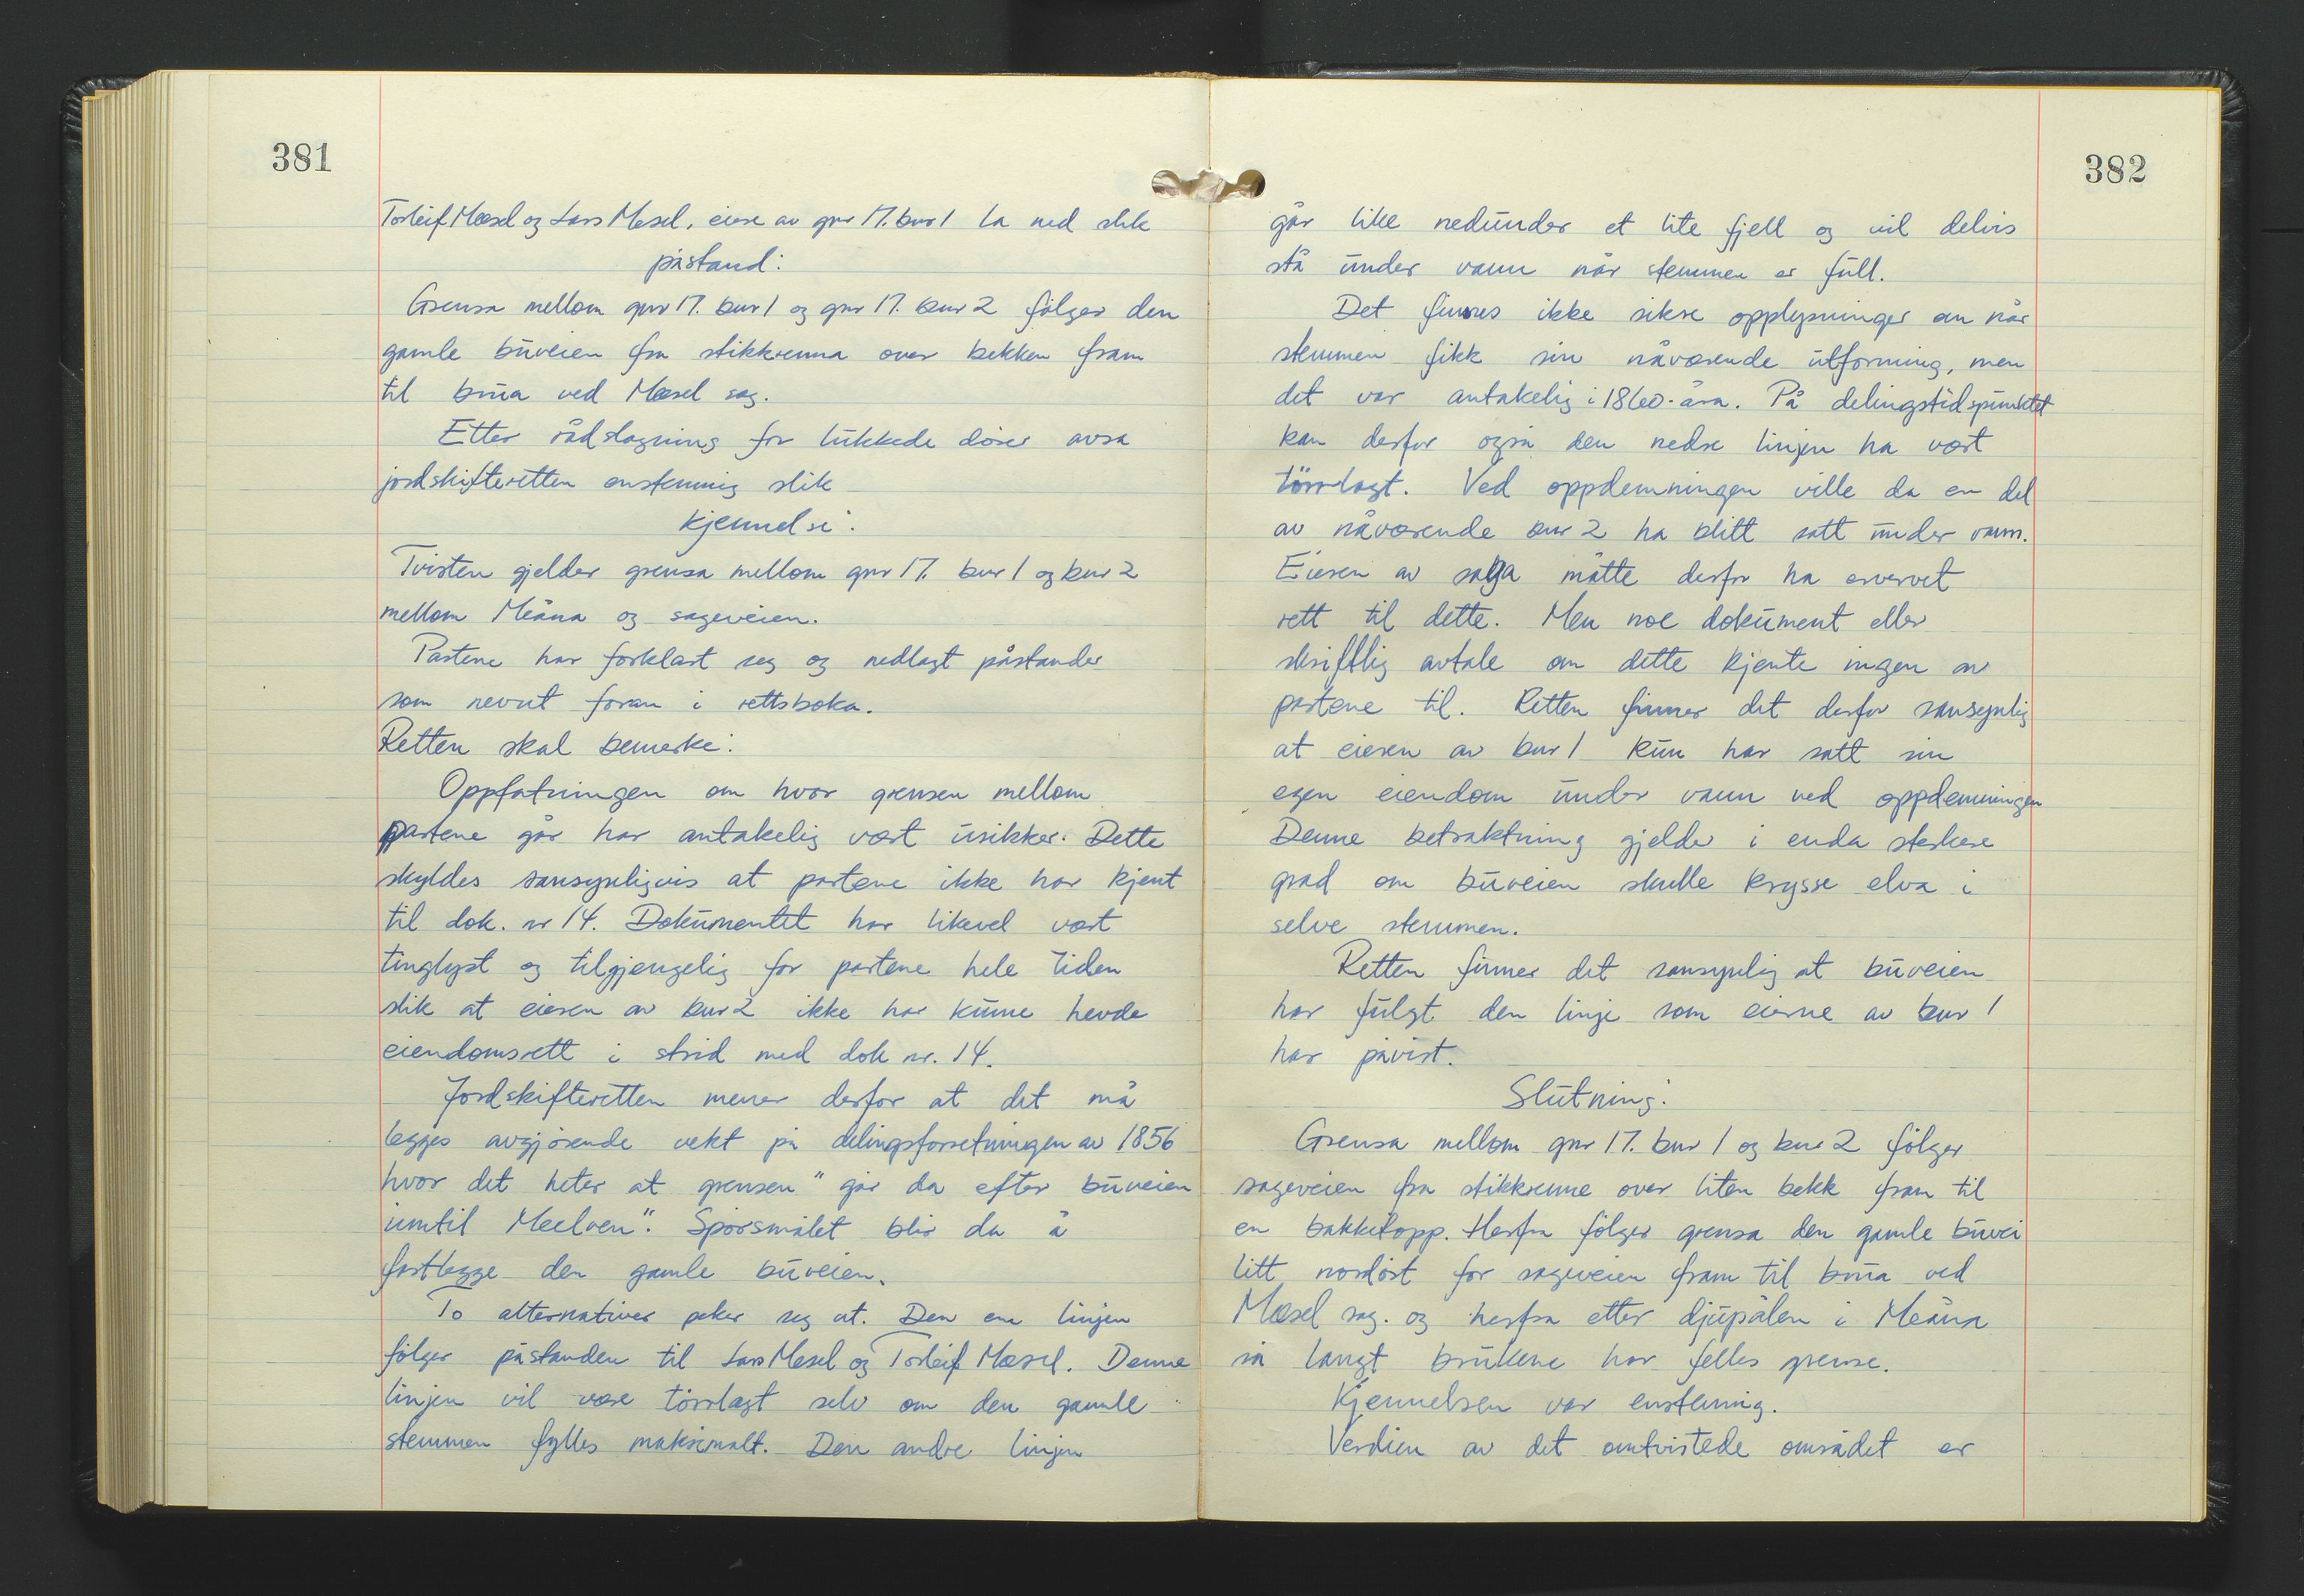 381
Torleif Mæsel og Lars Mesel, eiere av gnr 17. bnr 1 la ned slik
påstand:
Grensa mellom gnr 17. bnr 1 og gnr 17. bnr 2 følger den
gamle buveien fra stikkrenna over bekken fram
til brua ved Mæsel sag.
Etter rådslagning for lukkede dører avsa
jordskifteretten enstemmig slik
kjennelse:
Tvisten gjelder grensa mellom gnr 17. bnr 1 og bnr 2
mellom Meåna og sageveien.
Partene har forklart seg og nedlagt påstander
som nevnt foran i rettsboka.
Retten skal bemerke:
Oppfatningen om hvor grensen mellom
partene går har antakelig vært usikker. Dette
skyldes sansynligvis at partene ikke har kjent
til dok. nr 14. Dokumentet har likevel vært
tinglyst og tilgjengelig for partene hele tiden
slik at eieren av bnr 2 ikke har kunne hevde
eiendomsrett i strid med dok nr. 14.
Jordskifteretten mener derfor at det må
legges avgjørende vekt på delingsforretningen av 1856
hvor det heter at grensen "går da efter buveien
inntil Meelven". Spørsmålet blir da å
fastlegge den gamle buveien.
To alternativer peker seg ut. Den ene linjen
følger påstanden til Lars Mesel og Torleif Mæsel. Denne
linjen vil være tørrlagt selv om den gamle
stemmen fylles maksimalt. Den andre linjen
382
går like nedunder et lite fjell og vil delvis
stå under vann når stemmen er full.
Det finnes ikke sikre opplysninger om når
stemmen fikk sin nåværende utforming, men
det var antakelig i 1860-åra. På delingstidspunktet
kan derfor også den nedre linjen ha vært
tørrlagt. Ved oppdemningen ville da en del
av nåværende bnr 2 ha blitt satt under vann.
Eieren av saga måtte derfor ha ervervet
rett til dette. Men noe dokument eller
skriftlig avtale om dette kjente ingen av
partene til. Retten finner det derfor sansynlig
at eieren av bnr 1 kun har satt sin
egen eiendom under vann ved oppdemningen
Denne betraktning gjelder i enda sterkere
grad om buveien skulle krysse elva i
selve stemmen.
Retten finner det sansynlig at buveien
har fulgt den linje som eierne av bnr 1
har påvist.
Slutning:
Grensa mellom gnr 17. bnr 1 og bnr 2 følger
sageveien fra stikkrenne over liten bekk fram til
en bakketopp. Herfra følger grensa den gamle buvei
litt nordøst for sageveien fram til brua ved
Mæsel sag. og herfra etter djupålen i Meåna
så langt brukene har felles grense.
Kjennelsen var enstemmig.
Verdien av det omtvistede området er